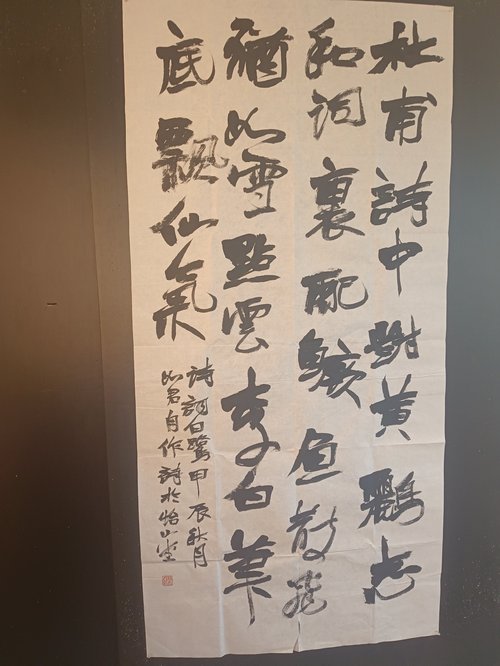 杜甫詩中對黃鸝志
和詞裏配鱖魚散飛
猶如雪點雲李白筆
底飄仙氣
詩詞白鷺甲辰秋月
如君自作詩於怡山堂